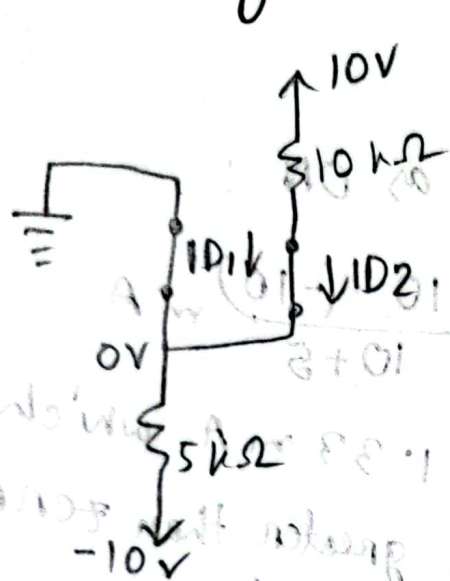 10V
10 kΩ
ID1
ID2
0V
5 kΩ
-10V